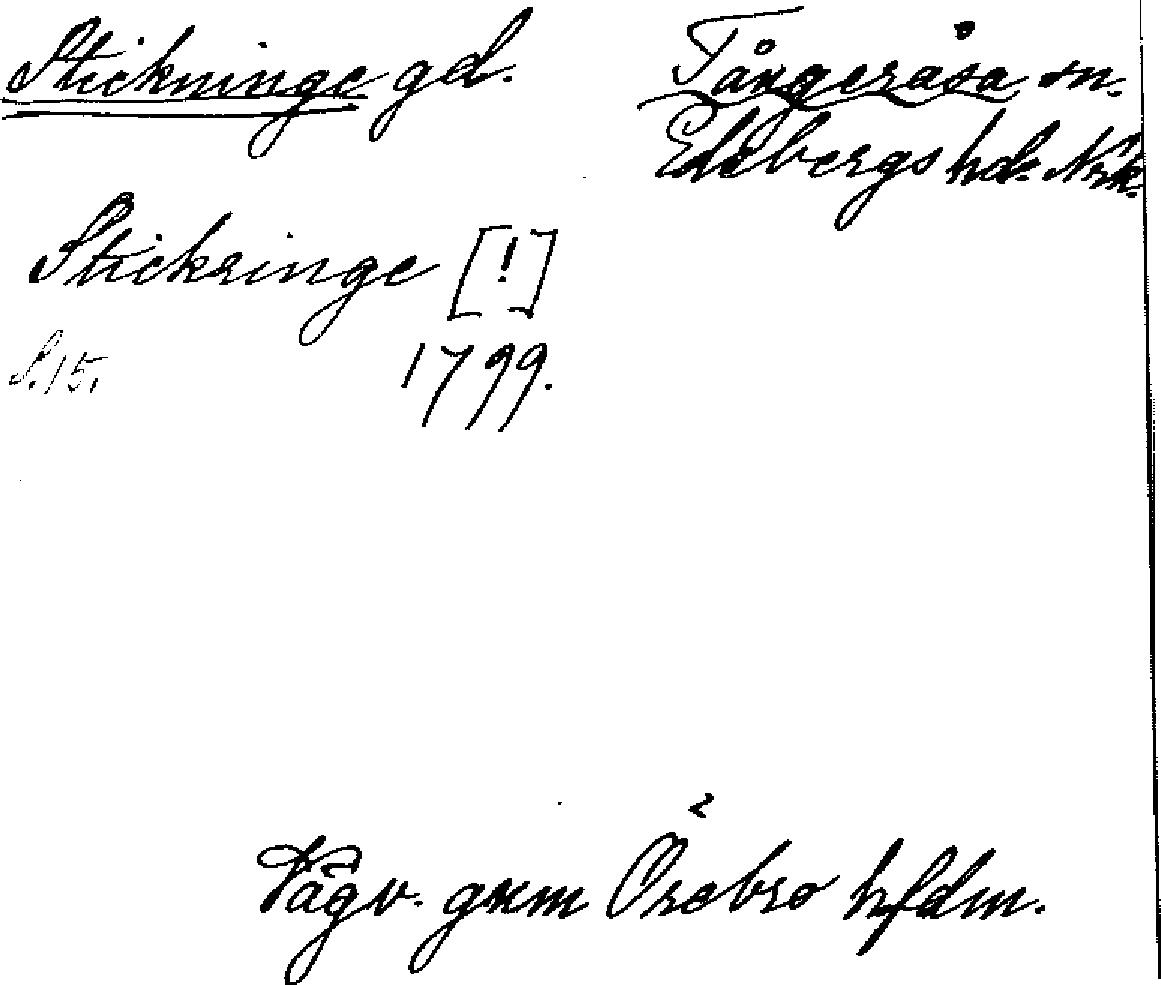 Stickninge gd.
Tångeråsa sn.
Edsbergs hd. Nrk.
Stickringe [!]
S. 15. 1799.
Vägv. gnm Örebro hfdm.